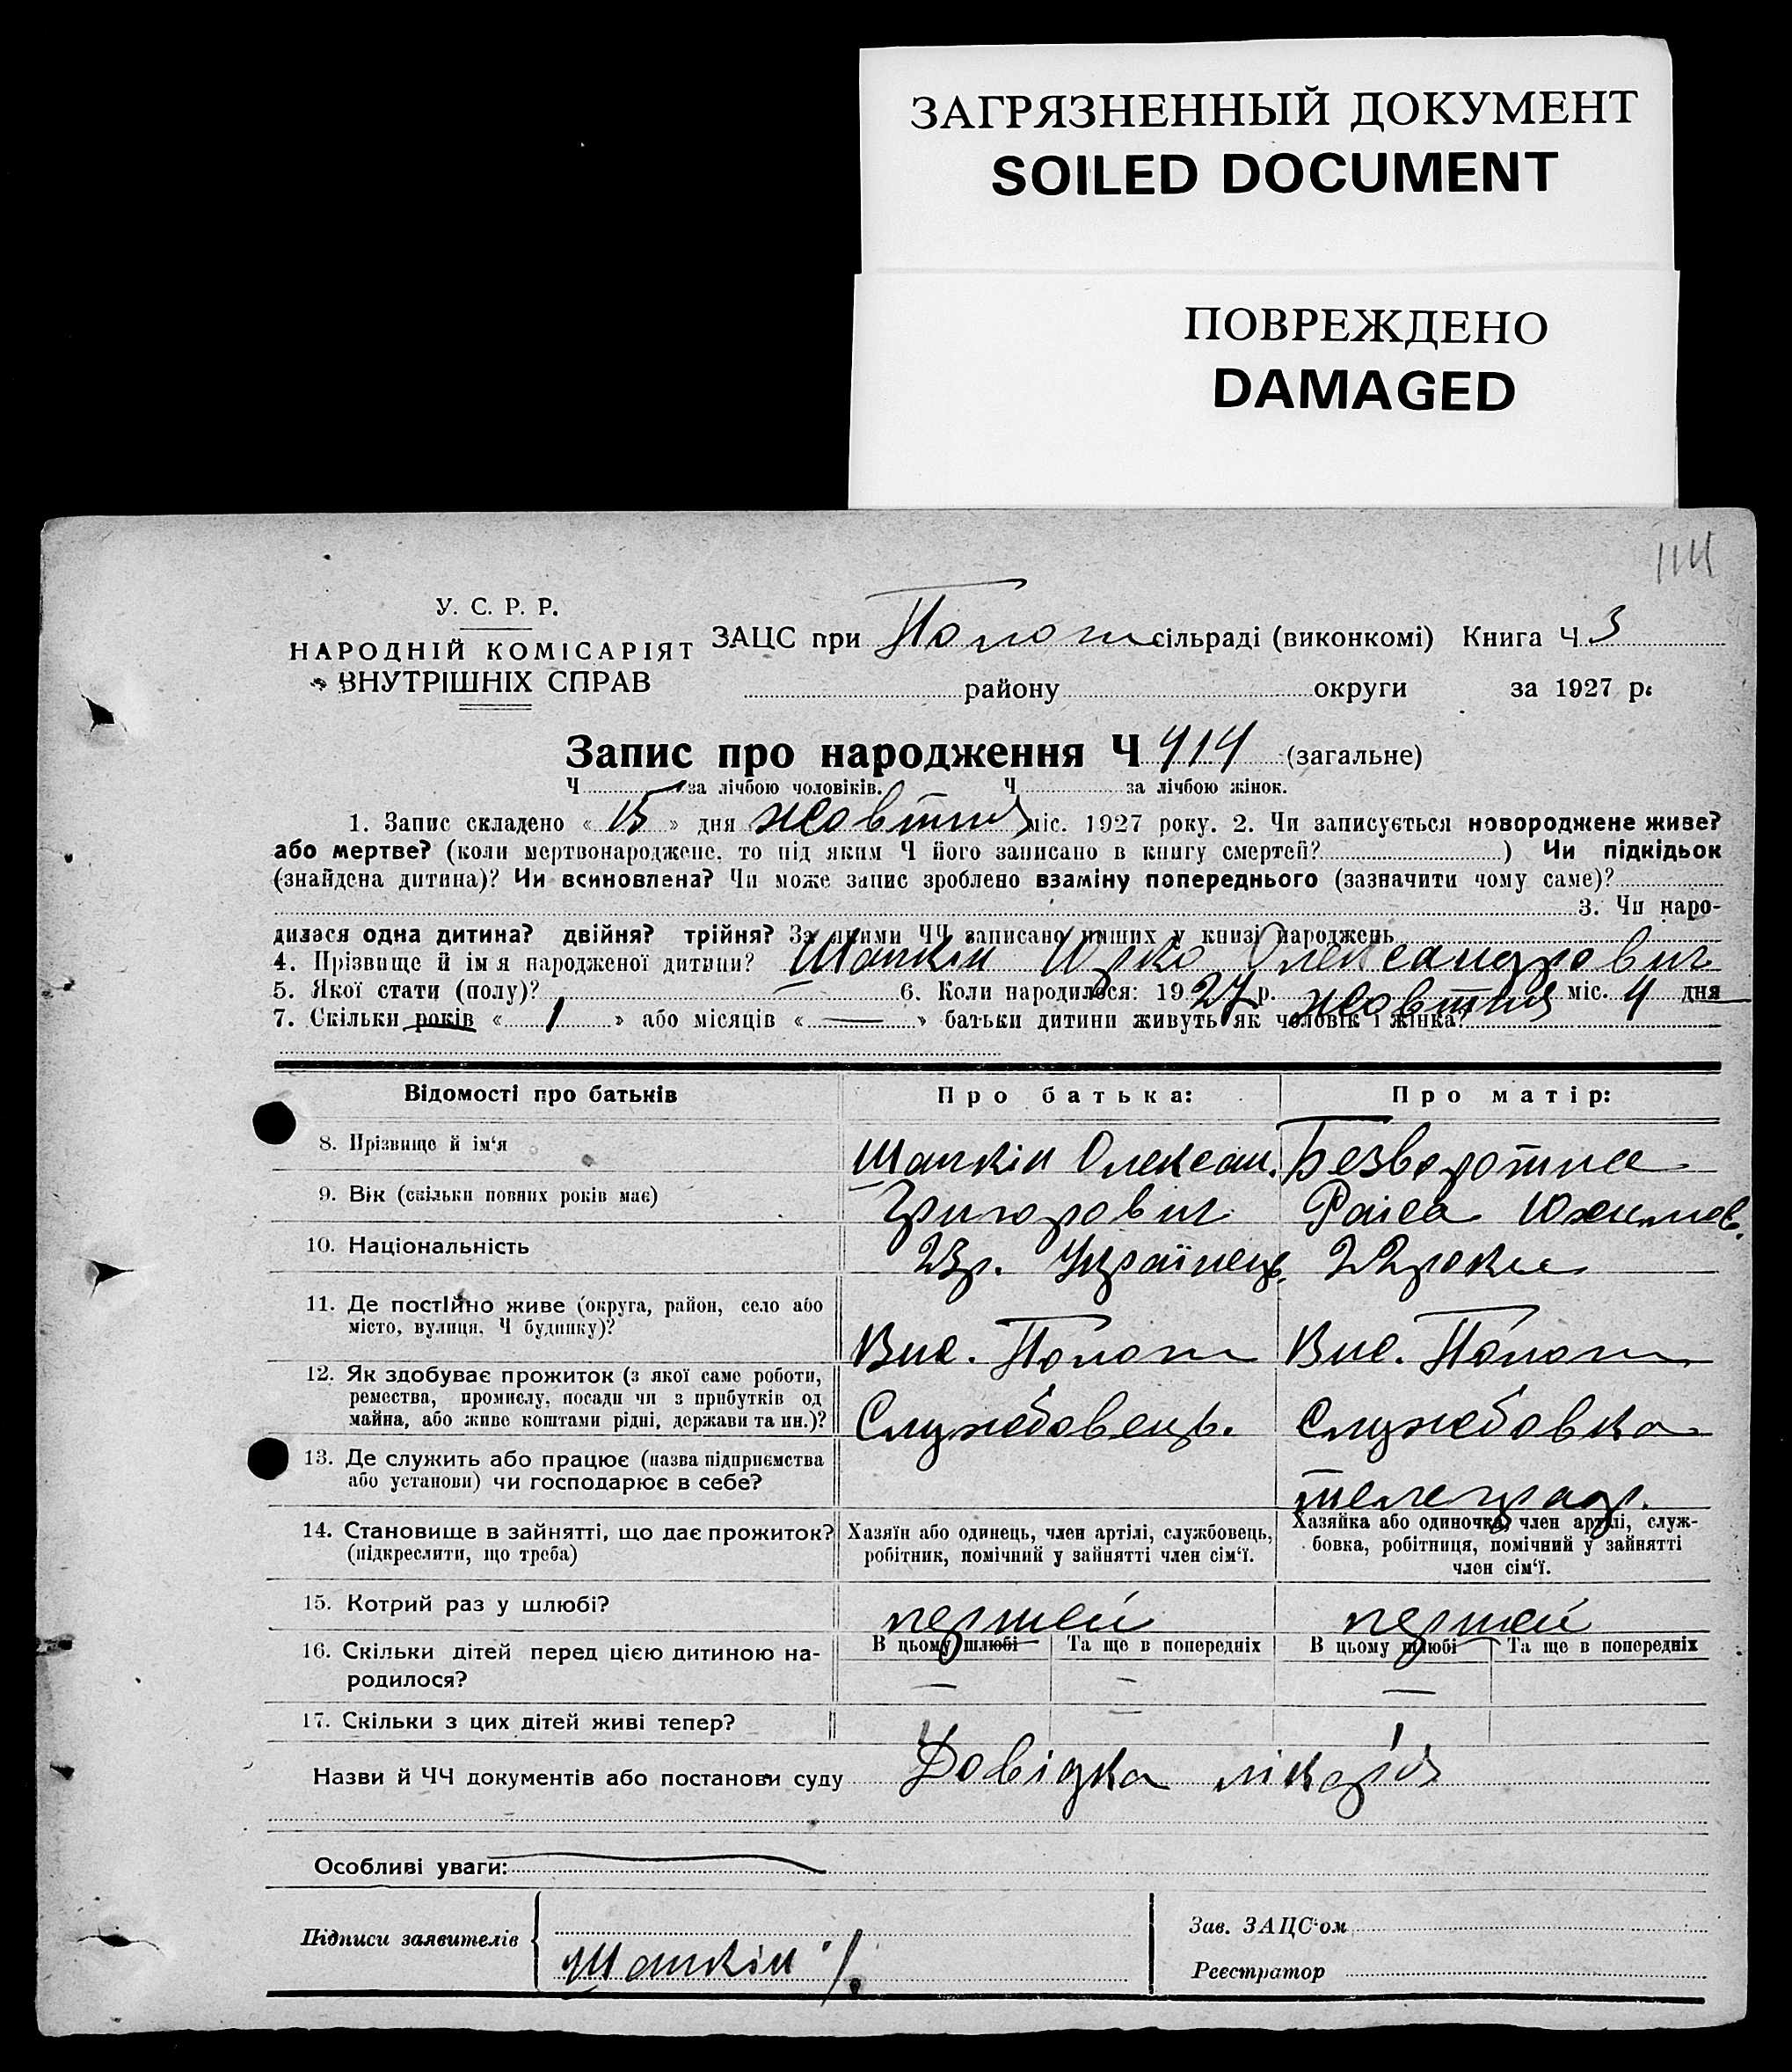 ЗАГРЯЗНЕННЫЙ ДОКУМЕНТ
SOILED DOCUMENT
ПОВРЕЖДЕНО
DAMAGED
У. С. Р. Р.
НАРОДНІЙ КОМІСАРІЯТ
ВНУТРІШНІХ СПРАВ
ЗАЦС при Полог сільраді (виконкомі) Книга Ч 3
району округи за 1927 р.
Запис про народження Ч 414 (загальне)
Ч за лічбою чоловіків. Ч за лічбою жінок.
1. Запис складено « 15 » дня жовтня міс. 1927 року. 2. Чи записується новороджене живе?
або мертве? (коли мертвонароджене, то під яким Ч його записано в книгу смертей? ) Чи підкідьок
(знайдена дитина)? Чи всиновлена? Чи може запис зроблено взаміну попереднього (зазначити чому саме)?
3. Чи наро-
дилася одна дитина? двійня? трійня? За якими ЧЧ записано инших у книзі народжень
4. Прізвище й ім я народженої дитини? Шапкін Юрко Олександрович
5. Якої стати (полу)? 6. Коли народилося: 1927 р. жовтня міс. 4 дня
7. Скільки років « 1 » або місяців « — » батьки дитини живуть як чоловік і жінка?
Відомості про батьків Про батька: Про матір:
8. Прізвище й ім'я Шапкін Олексан. Безворотня
9. Вік (скільки повних років має) Григорович Раіса Юхимов.
10. Національність 23р. Українець. 22 роки
11. Де постійно живе (округа, район, село або
місто, вулиця, Ч будинку)? Вис. Пологи Вис. Пологи
12. Як здобуває прожиток (з якої саме роботи,
ремества, промислу, посади чи з прибутків од
майна, або живе коштами рідні, держави та ин.)? Службовець. Службовка
13. Де служить або працює (назва підприємства
або установи) чи господарює в себе? телеграф.
14. Становище в зайнятті, що дає прожиток?
(підкреслити, що треба)
Хазяїн або одинець, член артілі, службовець,
робітник, помічний у зайнятті член сім'ї.
Хазяйка або одиночка, член артілі, служ-
бовка, робітниця, помічний у зайнятті
член сім'ї.
15. Котрий раз у шлюбі? перший перший
16. Скільки дітей перед цією дитиною на-
родилося?
В цьому шлюбі Та ще в попередніх В цьому шлюбі Та ще в попередніх
— — —
17. Скільки з цих дітей живі тепер? — 1
Назви й ЧЧ документів або постанови суду Довідка лікаря
Особливі уваги:
Підписи заявителів
Шапкін
Зав. ЗАЦС'ом
Реєстратор